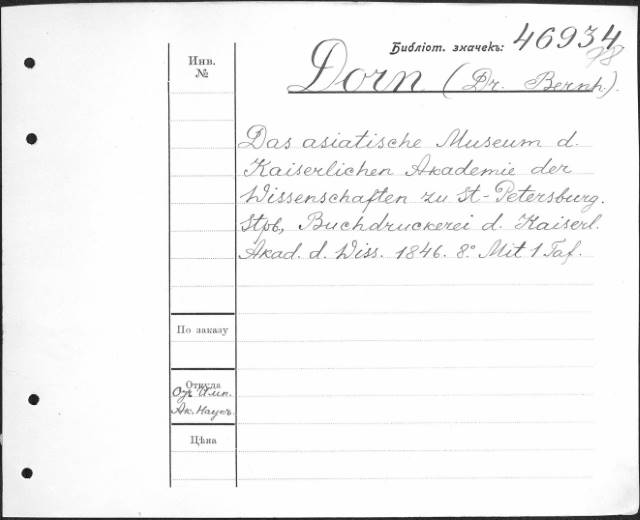 Библіот. значекъ: 46934
98
Инв.
№
Dorn (Dr. Bernh.).
Das asiatische Museum d.
Kaiserlichen Akademie der
Wissenschaften zu St-Petersburg.
Stpb, Buchdruckerei d. Kaiserl.
Akad. d. Wiss. 1846. 8º Mit 1 Taf.
По заказу
Откуда
Отъ Имп.
Ак. Наукъ.
Цѣна